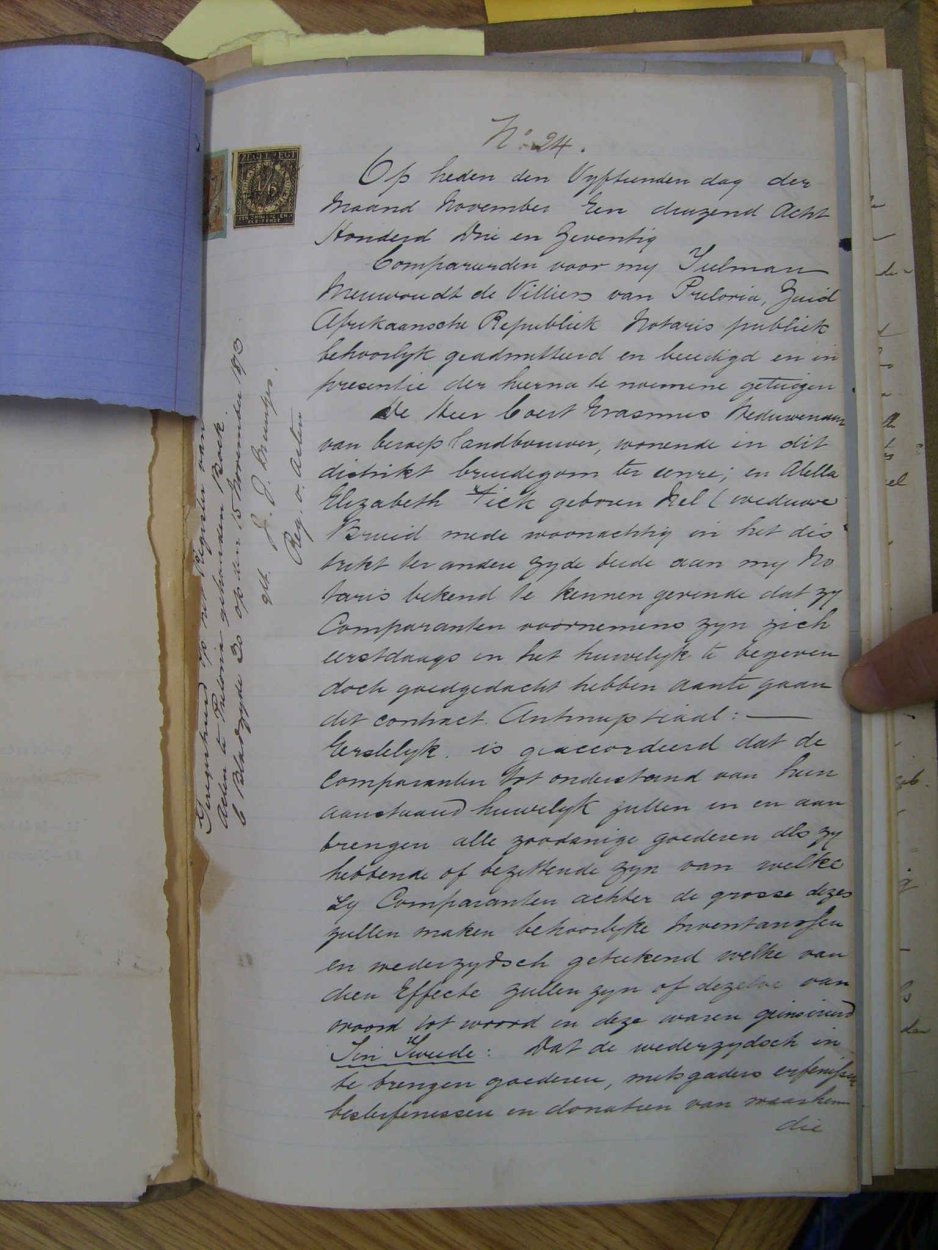 No. 24.
Op heden den Vyftienden dag der
Maand November Een duizend Acht
Honderd Drie en Zeventig
Compareerden voor my Tielman
Nieuwoudt de Villiers van Pretoria, Zuid
Afrikaansche Republiek Notaris publiek
behoorlyk geadmitteerd en beeedigd en in
presentie der hierna te noemene getuigen
De Heer Coert Erasmus Weduwenaar
van beroep landbouwer, wonende in dit
distrikt bruidegom ter eenre; en Abella
Elizabeth Fick geboren Nel (weduwe
Bruid mede woonachtig in het dis
trikt ter andere zyde beide aan my No
taris bekend te kennen gevende dat zy
Comparanten voornemens zyn zich
eerstdaags in het huwelyk te begeven
doch goedgedacht hebben aan te gaan
dit contract Antinuptiaal: —
Eerstelyk is geaccordeerd dat de
Comparanten tot onderstand van hun
aanstaand huwelyk zullen in en aan
brengen alle zoodanige goederen als zy
hebbende of bezittende zyn van welke
Zy Comparanten achter de grosse dezes
zullen maken behoorlyke Inventarissen
en wederzydsch geteekend welke van
dien Effecte zullen zyn of dezelve van
woord tot woord in deze waren geinsereerd
Ten Tweede: Dat de wederzydsch in
te brengen goederen, mitsgaders erfenissen
besterfenissen en donatien van waar hem
die
Geregistreerd in het Register van
Acten te Pretoria gehouden Boek
C Bladzyde 20 op den 15 November 1873
get. J. J.
Reg. v. Acten
ZEGELREGT
1/6